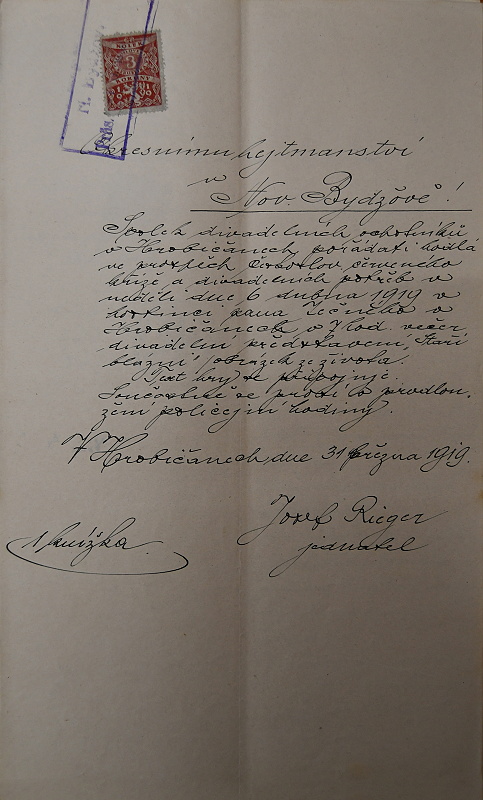 Okresnímu hejtmanství
v Nov. Bydžově!
Spolek divadelních ochotníků
v Hrobičanech pořádati hodlá
ve prospěch Českoslov. červeného
kříže a divadelních potřeb v
neděli dne 6 dubna 1919 v
hostinci pana Tečného v
Hrobičanech o 7 hod. večer
divadelní představení, Staří
blázni" obrázek ze života.
Text hry se připojuje.
Současně se prosí o prodlou-
žení policejní hodiny.
V Hrobičanech, dne 31 března 1919.
Josef Rieger
jednatel
1 knížka.